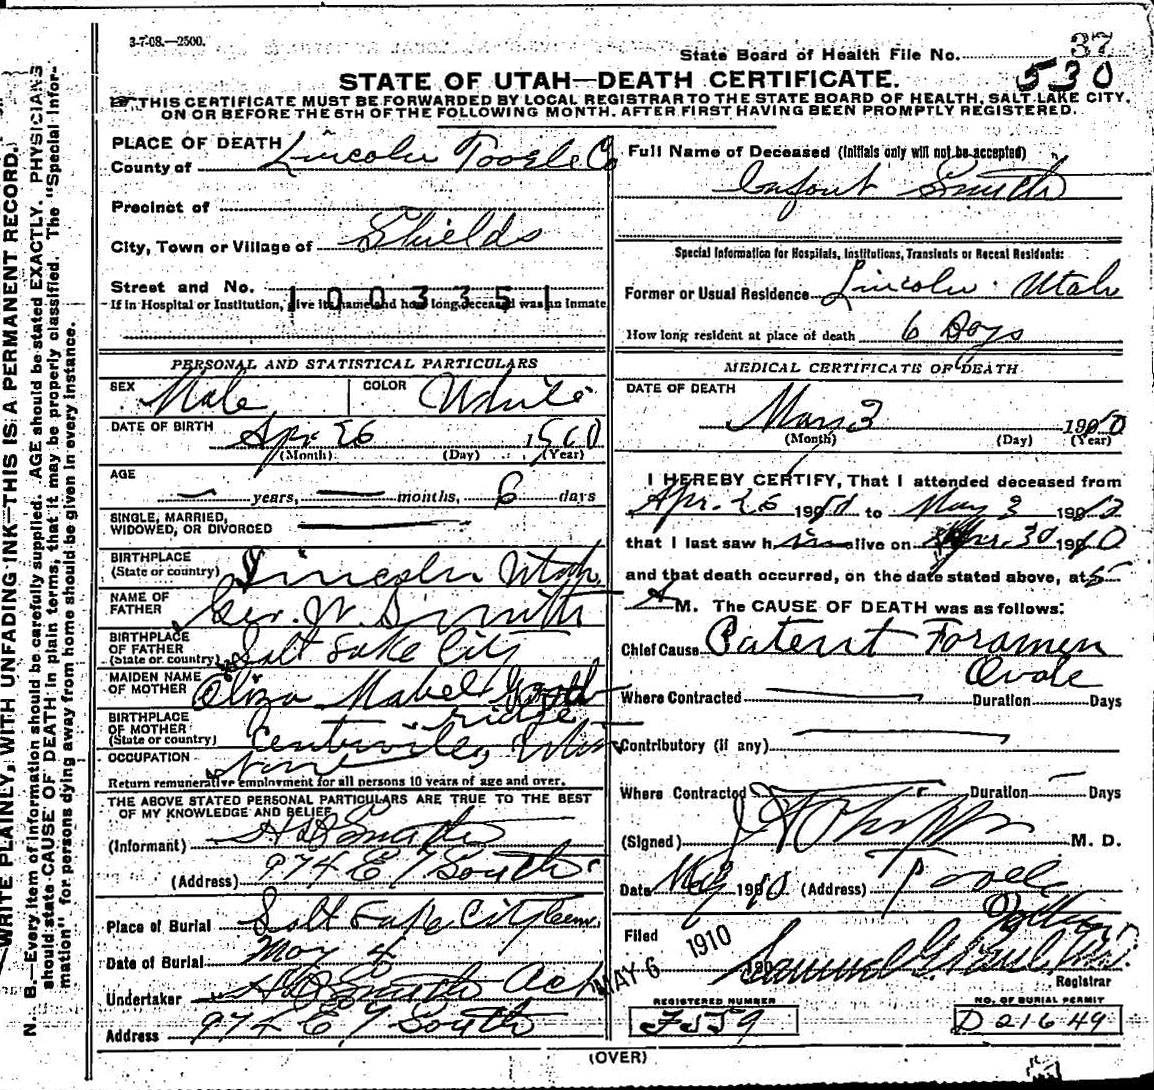 3-7-08.—2500.
State Board of Health File No. 37
530
STATE OF UTAH—DEATH CERTIFICATE.
THIS CERTIFICATE MUST BE FORWARDED BY LOCAL REGISTRAR TO THE STATE BOARD OF HEALTH, SALT LAKE CITY,
ON OR BEFORE THE 5TH OF THE FOLLOWING MONTH. AFTER FIRST HAVING BEEN PROMPTLY REGISTERED.
WRITE PLAINLY, WITH UNFADING INK—THIS IS A PERMANENT RECORD.
N. B.—Every item of information should be carefully supplied. AGE should be stated EXACTLY. PHYSICIANS
should state CAUSE OF DEATH in plain terms, that it may be properly classified. The "Special Infor-
mation" for persons dying away from home should be given in every instance.
PLACE OF DEATH
County of Lincoln Tooele Co
Precinct of
City, Town or Village of Shields
Street and No.
If in Hospital or Institution, give its name and how long deceased was an inmate
1003351
PERSONAL AND STATISTICAL PARTICULARS
SEX Male COLOR White
DATE OF BIRTH Apr 26 1910
(Month) (Day) (Year)
AGE
— years, — months, 6 days
SINGLE, MARRIED,
WIDOWED, OR DIVORCED
BIRTHPLACE
(State or country) Lincoln Utah
NAME OF
FATHER Geo. W. Smith
BIRTHPLACE
OF FATHER
(State or country) Salt Lake City
MAIDEN NAME
OF MOTHER Eliza Mabel
ridge
BIRTHPLACE
OF MOTHER
(State or country) Centerville, Utah
OCCUPATION None
Return remunerative employment for all persons 10 years of age and over.
THE ABOVE STATED PERSONAL PARTICULARS ARE TRUE TO THE BEST
OF MY KNOWLEDGE AND BELIEF
(Informant) Smith
(Address) 974 E 7 South
Place of Burial Salt Lake City Cem.
Date of Burial May 4
Undertaker Smith
Address 974 E 7 South
Full Name of Deceased (Initials only will not be accepted)
Infant Smith
Special Information for Hospitals, Institutions, Transients or Recent Residents:
Former or Usual Residence Lincoln Utah
How long resident at place of death 6 Days
MEDICAL CERTIFICATE OF DEATH
DATE OF DEATH
May 3 1910
(Month) (Day) (Year)
I HEREBY CERTIFY, That I attended deceased from
Apr. 26 1910 to May 3 1910
that I last saw him alive on Apr. 30 1910
and that death occurred, on the date stated above, at 5
A M. The CAUSE OF DEATH was as follows:
Chief Cause Patent Foramen
Ovale
Where Contracted — Duration Days
Contributory (if any) —
Where Contracted — Duration — Days
(Signed) M. D.
Date May 3 1910 (Address) Tooele
Filed MAY 6 1910 190
Samuel G. Paul, M.D.
Registrar
REGISTERED NUMBER
NO. OF BURIAL PERMIT
D 21649
(OVER)